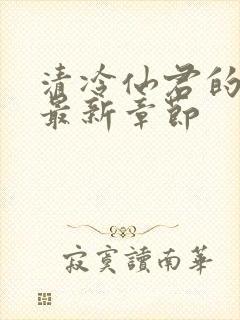 清冷仙君的
最新章節
寂寞讀南華